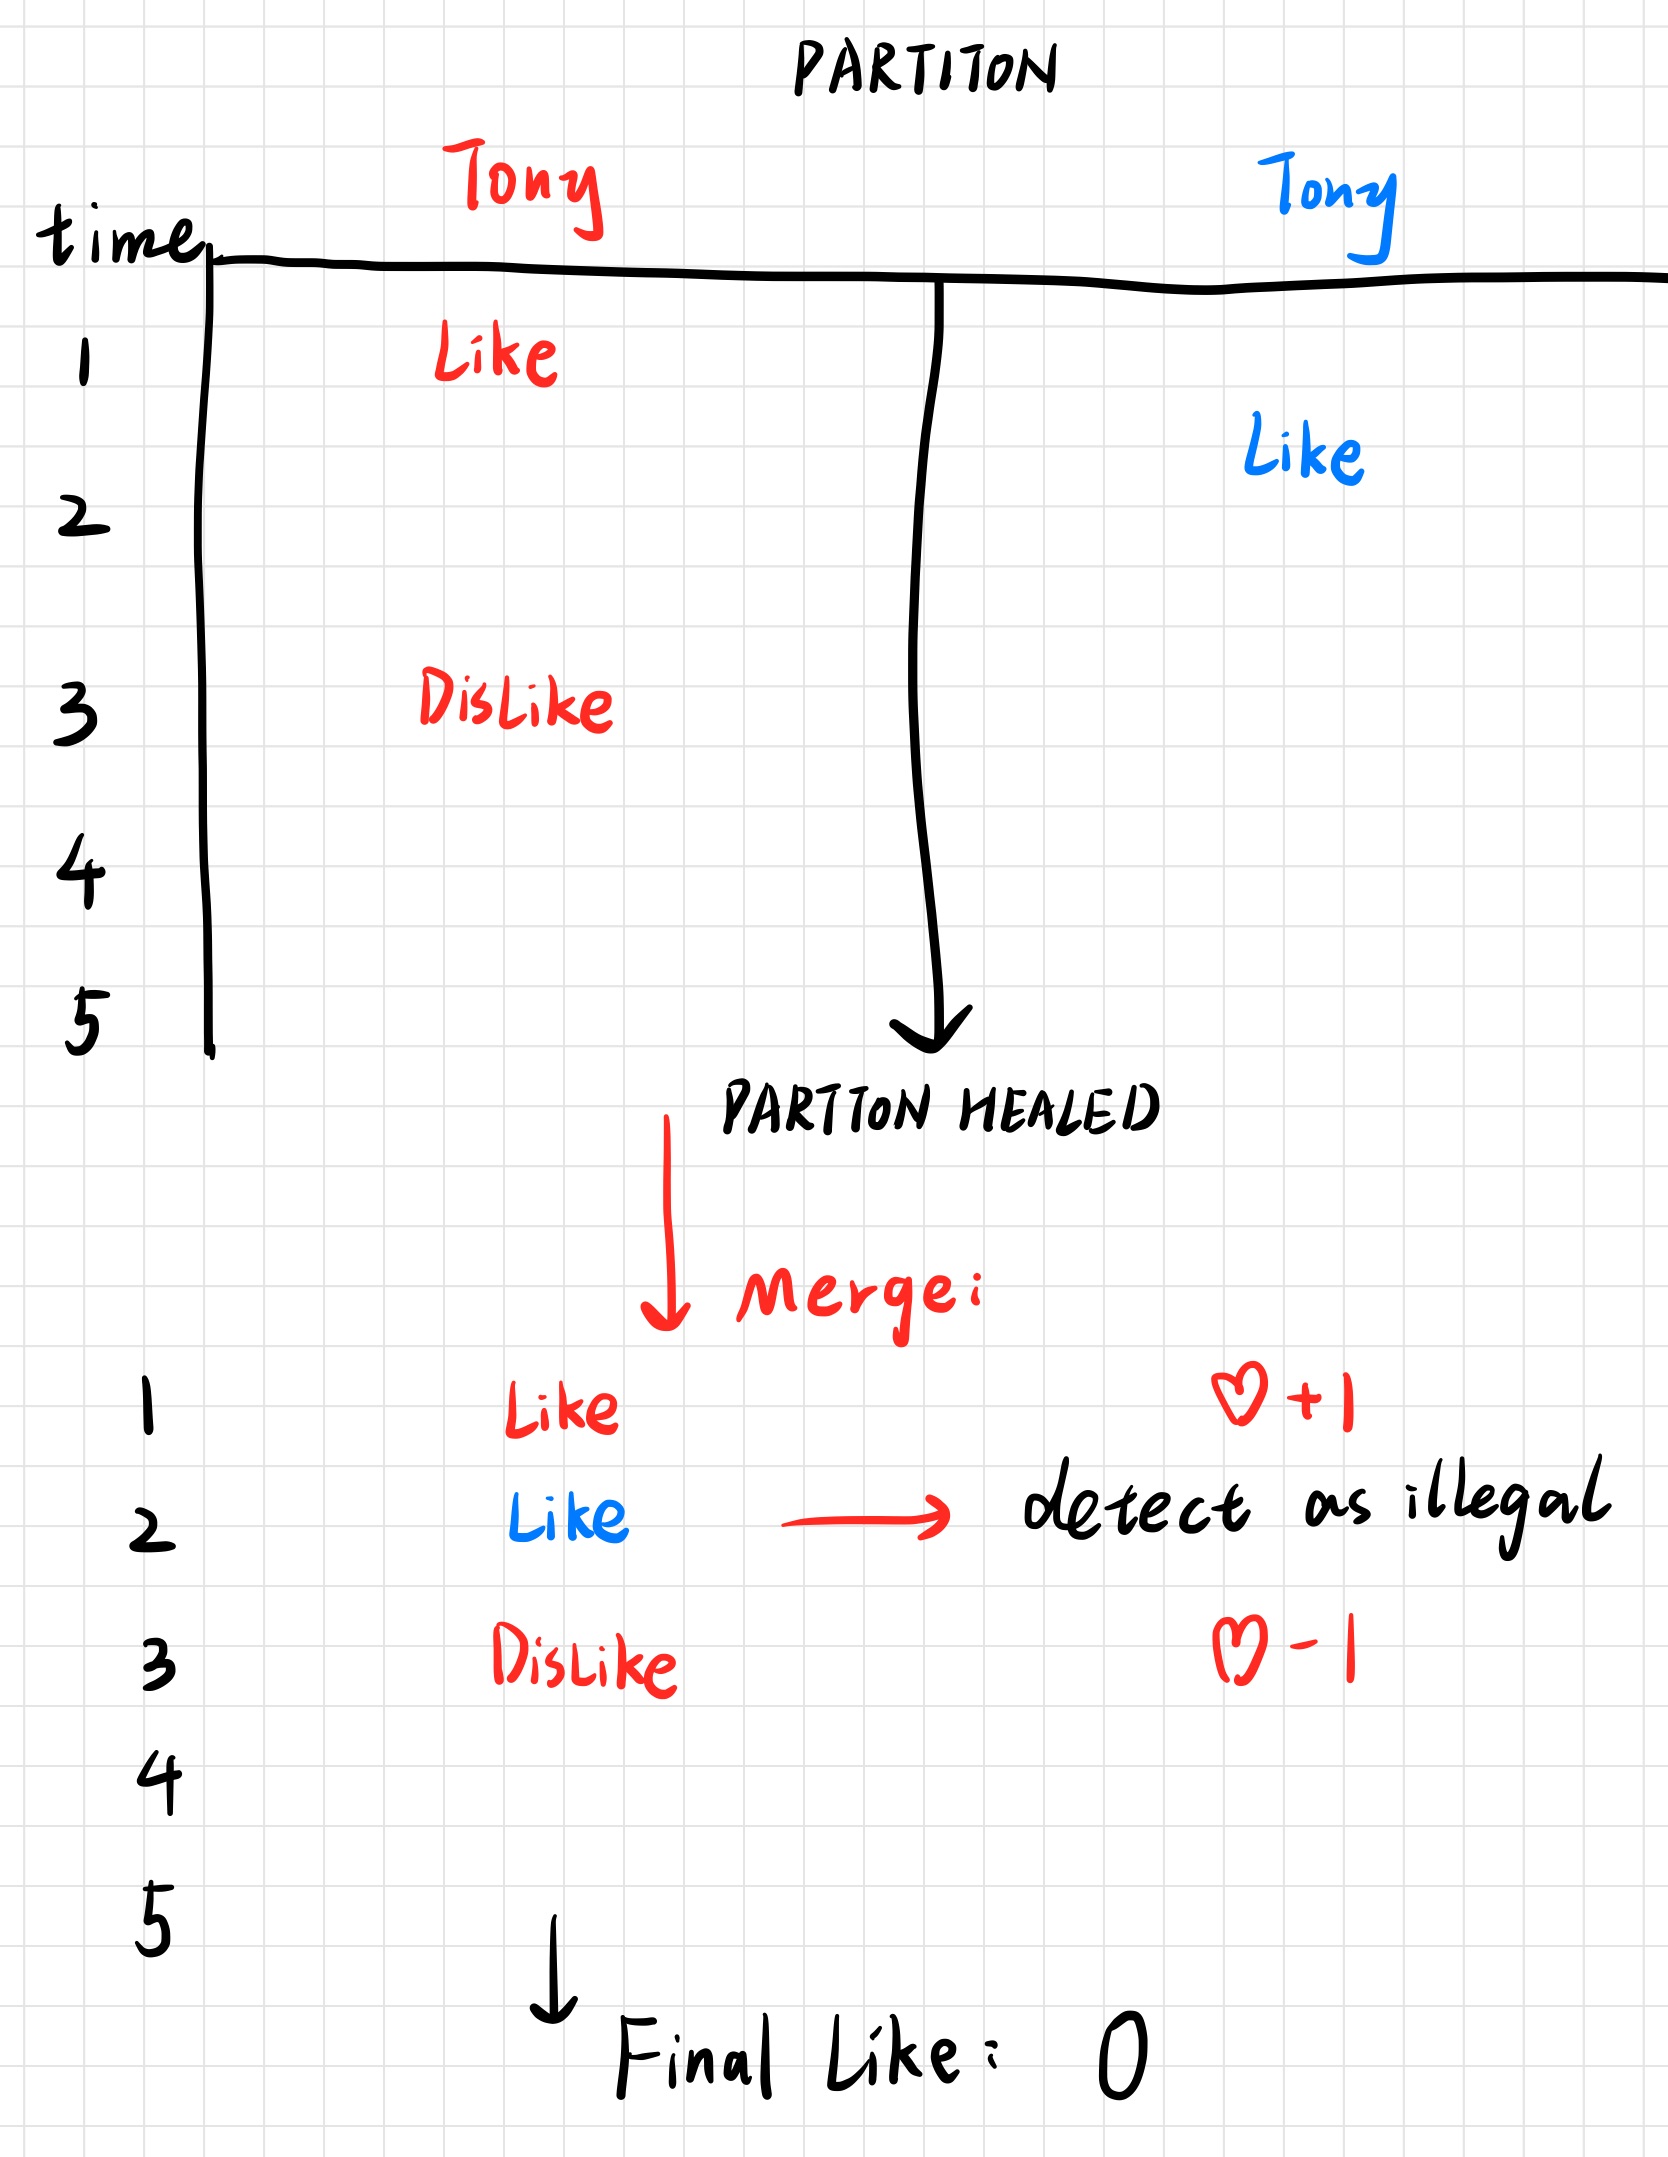 PARTITON
Tony Tony
time
1 Like
Like
2
3 Dislike
4
5
PARTTON HEALED
Merge:
1 Like ♡+1
2 Like → detect as illegal
3 Dislike ♡-1
4
5
Final Like: 0